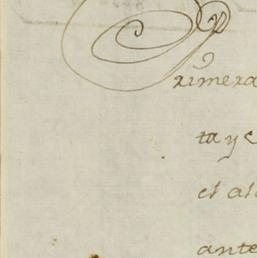 Primera
ta y
el al
ante